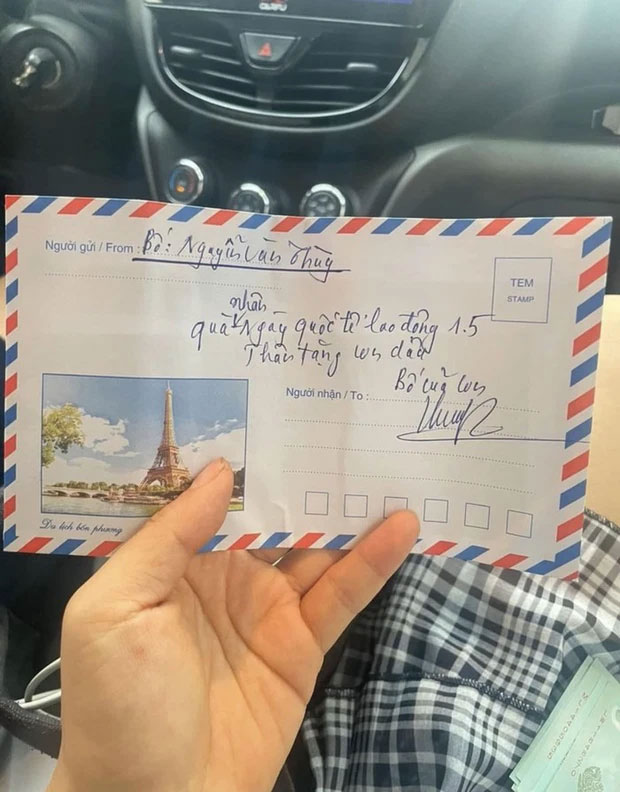 Người gửi / From : Bố: Nguyễn Văn Thủy
TEM
STAMP
nhân
quà Ngày quốc tế lao động 1.5
Thân tặng con dâu
Người nhận / To :
Bố của con
Du lịch bốn phương